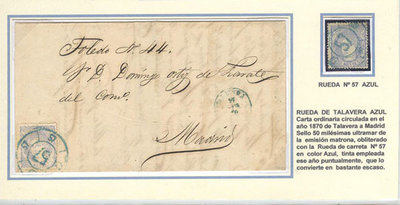 Toledo N. 44.
Sr D. Domingo de
del Com.º
Madrid
57
57
RUEDA Nº 57 AZUL
RUEDA DE TALAVERA AZUL
Carta ordinaria circulada en el
año 1870 de Talavera a Madrid
Sello 50 milésimas ultramar de
la emisión matrona, obliterado
con la Rueda de carreta Nº 57
en color Azul, tinta empleada
ese año puntualmente, que lo
convierte en bastante escaso.